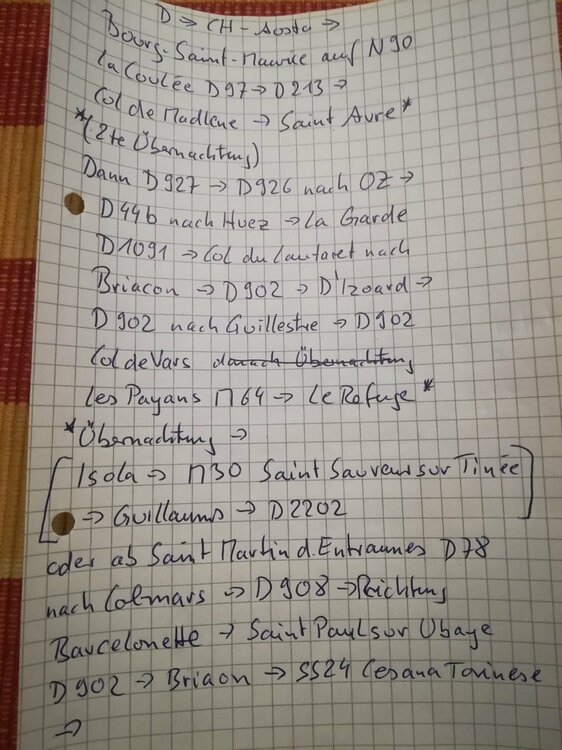 D → CH - Aosta →
Bourg-Saint-Maurice auf N90
La Coulée D97 → D213 →
Col de Madlene → Saint Avre*
*(2te Übernachtung)
Dann D927 → D926 nach OZ →
D44b nach Huez → La Garde
D1091 → Col du Lautaret nach
Briacon → D902 → D'Izoard →
D902 nach Guillestre → D902
Col de Vars danach Übernachtung
Les Payans M64 → Le Refuge*
*Übernachtung →
[Isola → M30 Saint Sauveur sur Tinée
→ Guillaums → D2202]
oder ab Saint Martin d. Entraunes D78
nach Colmars → D908 → Richtung
Barcelonette → Saint Paul sur Ubaye
D902 → Briaon → SS24 Cesana Torinese
→